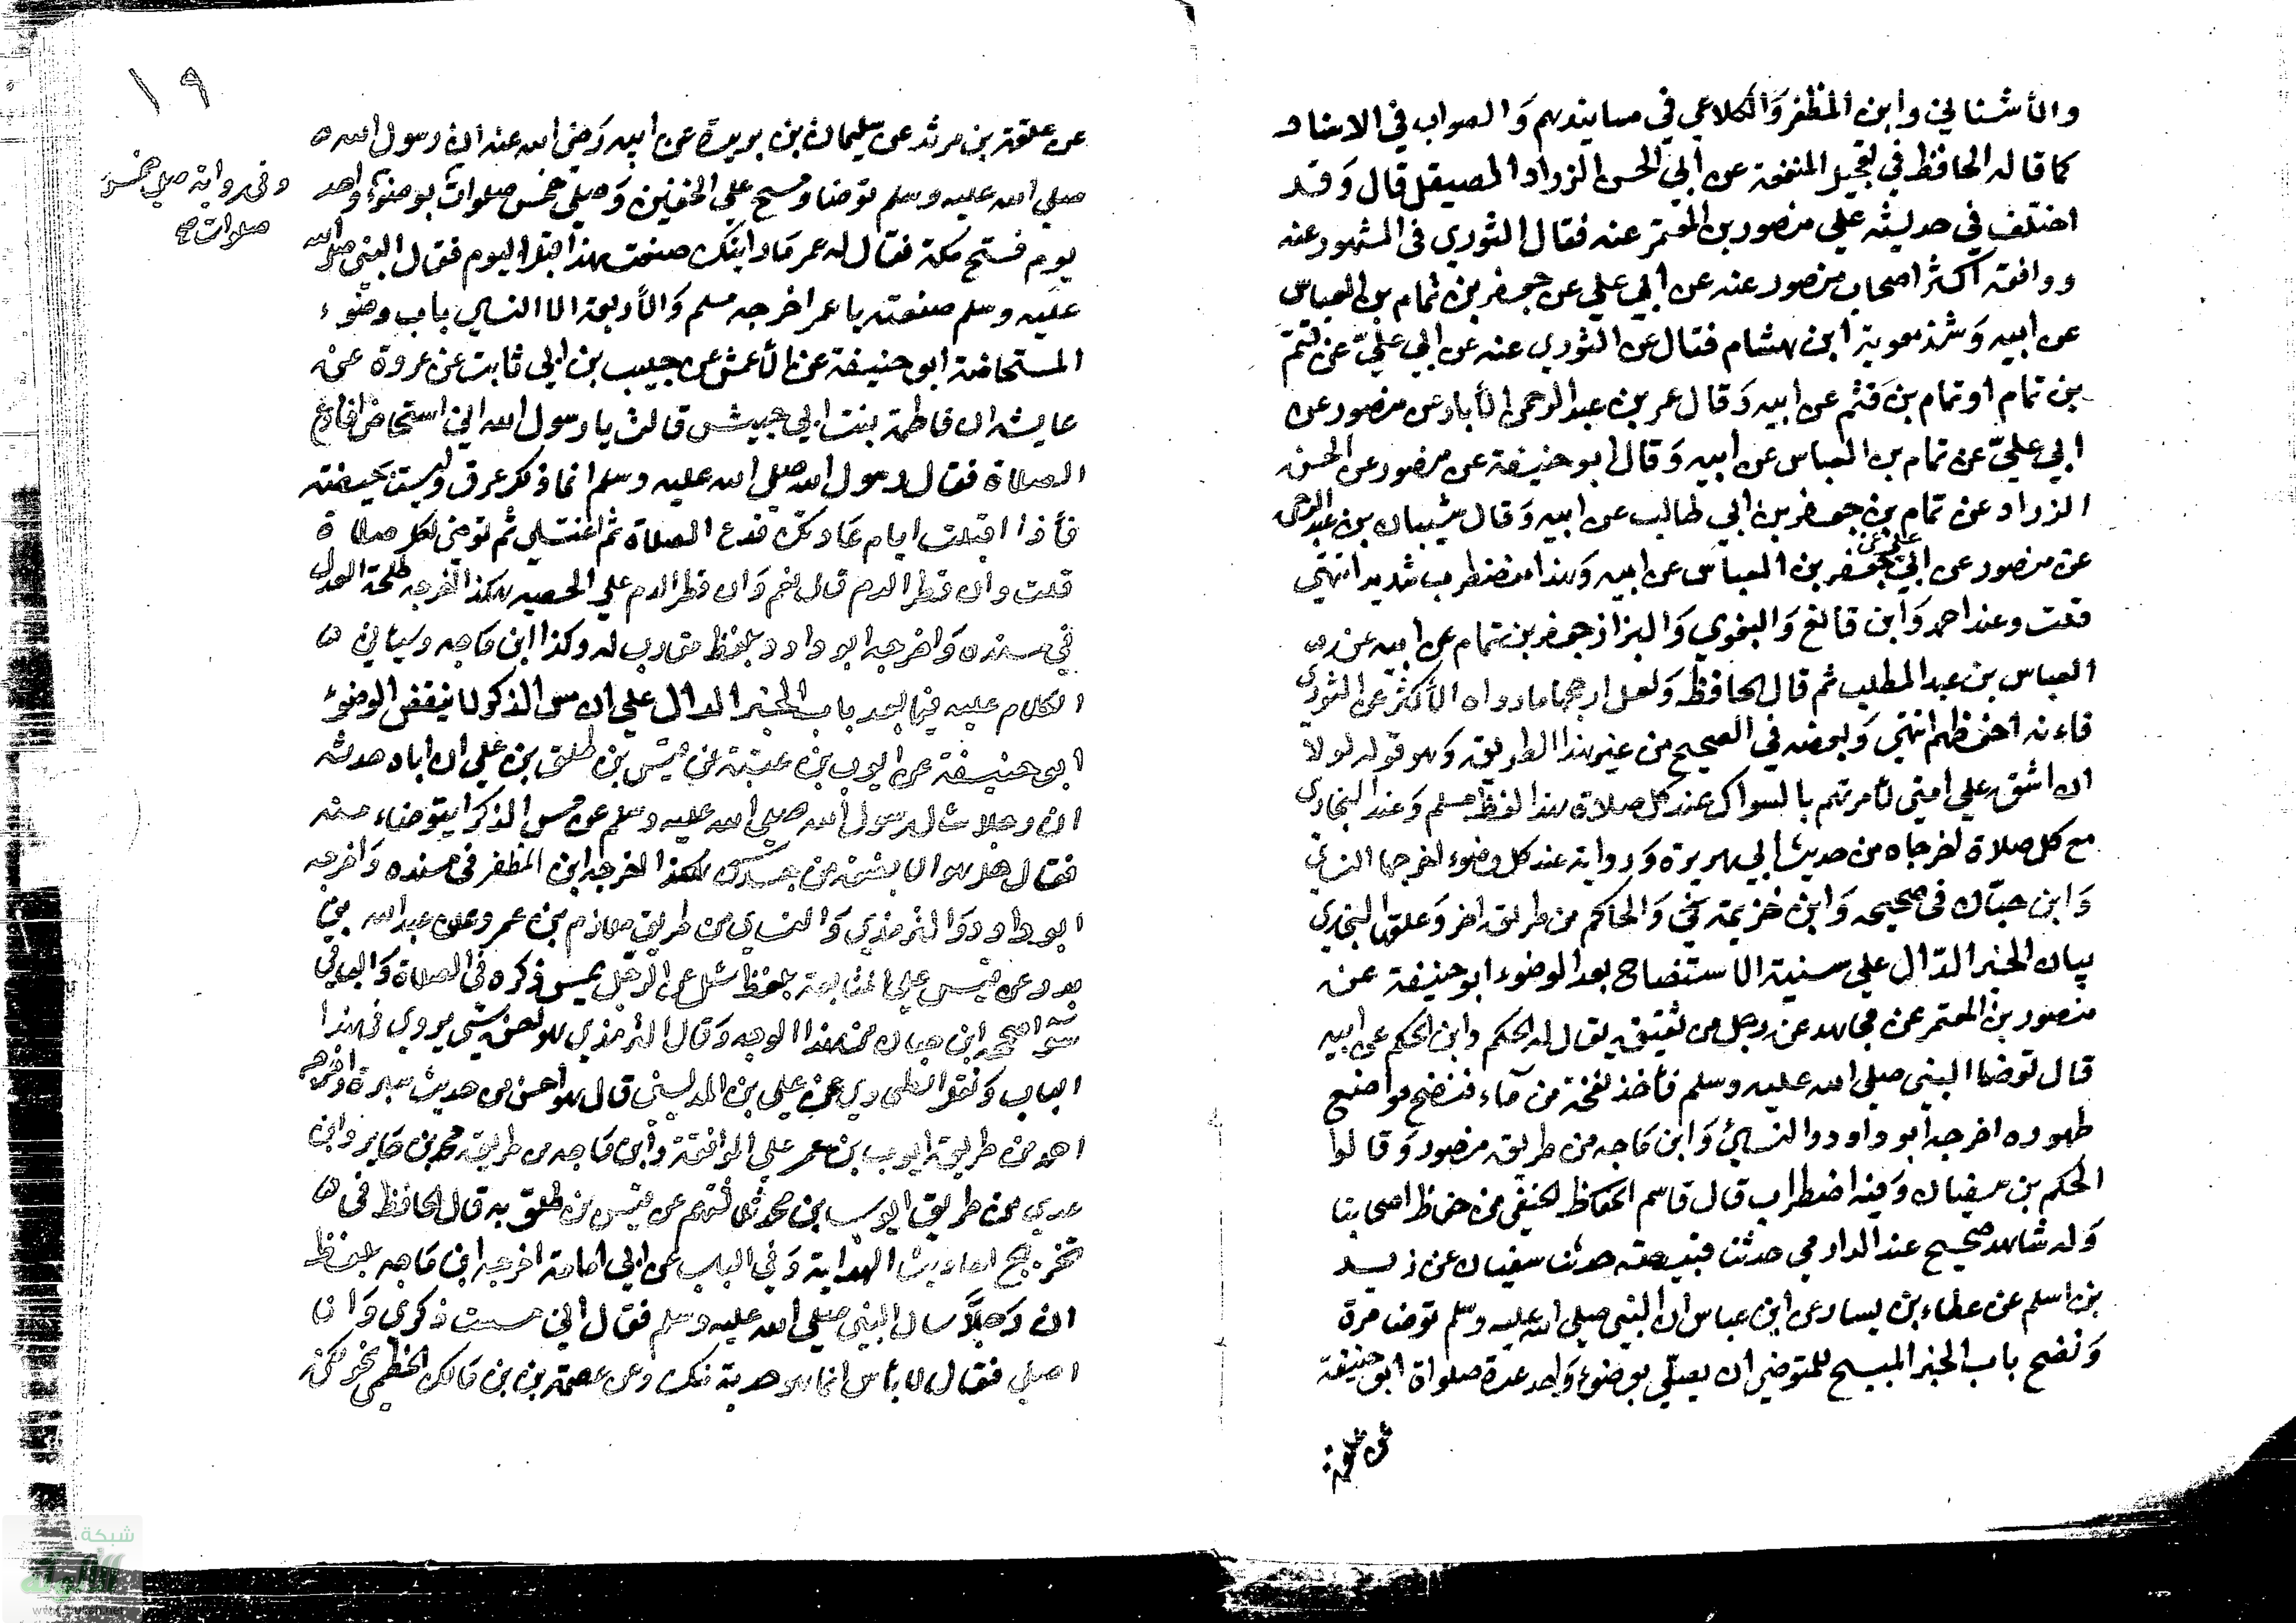 والأشناني وابن المظفر والكلاعي في مسانيدهم والصواب في الاسناد
كما قاله الحافظ في تعجيل المنفعة عن أبي الحسن الزراد الصيقل قال وقد
اختلف في حديثه علي منصور بن المعتمر عنه فقال الثوري في المشهور عنه
ووافقه أكثر اصحاب منصور عنه عن ابي علي عن جعفر بن تمام بن العباس
عن ابيه وشذ معوية ابن هشام فقال عن الثوري عنه عن ابي علي عن قثم
بن تمام او تمام بن قثم عن ابيه وقال عمر بن عبد الرحمن الأبار عن منصور عن
ابي علي عن تمام بن العباس عن ابيه وقال ابو حنيفة عن منصور عن الحسن
الزراد عن تمام بن جعفر بن ابي طالب عن ابيه وقال شيبان بن عبد الرحمن
عن منصور عن ابي علي عن جعفر بن العباس عن ابيه وهذا مضطرب شديد انتهي
قلت وعند احمد وابن قانع والبغوي والبزار جعفر بن تمام عن ابيه عن
العباس بن عبد المطلب ثم قال الحافظ ولعل ارجحها ما رواه الأكثر عن الثوري
فاءنه احفظهم انتهي وبعضه في الصحيح من غير هذا الطريق وهو قوله لولا
ان اشق علي امتي لأمرتهم بالسواك عند كل صلاة هذا لفظ مسلم وعند البخاري
مع كل صلاة اخرجاه من حديث ابي هريرة ورواية عند كل وضوء اخرجها النسائي
وابن حبان في صحيحه وابن خزيمة والحاكم من طريق اخر وعلقها البخاري
بيان الخبر الدال علي سنية الاستنضاح بعد الوضوء ابو حنيفة عن
منصور بن المعتمر عن مجاهد عن رجل من ثقيف يقال له الحكم وابن الحكم عن ابيه
قال توضا النبي صلي الله عليه وسلم فأخذ حفنة من ماء فنضح مواضع
طهوره اخرجه أبو داود والنسائي وابن ماجه من طريق منصور وقالوا
الحكم بن سفيان وفيه اضطراب قال قاسم الحافظ الحنفي من حفاظ اصحابنا
وله شاهد صحيح عند الدارمي حدثنا قبيصة حدثنا سفيان عن زيد
بن اسلم عن عطاء بن يسار عن ابن عباس ان النبي صلي الله عليه وسلم توضا مرة
ونضح باب الخبر المبيح للمتوضي ان يصلي بوضوء واحد عدة صلواة ابو حنيفة
عن علقمة
١٩
عن علقمة بن مرثد عن سليمان بن بريدة عن ابيه رضي الله عنه ان رسول الله
صلي الله عليه وسلم توضا ومسح علي الخفين وصلي خمس صلوات بوضوء واحد
يوم فتح مكة فقال له عمر ما رايتك صنعت هذا قبل اليوم فقال النبي صلي الله
عليه وسلم صنعته يا عمر اخرجه مسلم والأربعة الا النساي باب وضوء
المستحاضة ابو حنيفة عن الأعمش عن حبيب بن ابي ثابت عن عروة عن
عايشه ان فاطمة بنت ابي حبيش قالت يا رسول الله اني استحاض افادع
الصلاة فقال رسول الله صلي الله عليه وسلم انما ذلك عرق وليست بحيضة
فأذا اقبلت ايام عادتك فدع الصلاة ثم اغتسلي ثم توضي لكل صلاة
قلت وان قطر الدم قال نعم وان قطر الدم علي الحصير هكذا اخرجه طلحة العدل
في مسنده واخرجه ابو داود بلفظ مقارب له وكذا ابن ماجه وسياتي
الكلام عليه فيما بعد باب الخبر الدال علي ان مس الذكر لا ينقض الوضوء
ابو حنيفة عن ايوب بن عتبة عن قيس بن طلق بن علي ان اباه حدثه
ان رجلا سال رسول الله صلي الله عليه وسلم عن مس الذكر ايتوضاء منه
فقال هل هو الا بضعة من جسدك هكذا اخرجه ابن المظفر في مسنده واخرجه
ابو داود والترمذي والنساي من طريق ملازم بن عمرو عن عبد الله بن
بدر عن قيس علي المتابعة بلفظ سئل عن الرجل يمس ذكره في الصلاة والباقي
سواء صححه ابن حبان من هذا الوجه وقال الترمذي هو احسن شي يروي في هذا
الباب ونقل الطحاوي عن علي بن المديني قال هو احسن من حديث بسرة واخرجه
احمد من طريق ايوب بن عمر علي الموافقة وابن ماجه من طريق محمد بن جابر وابن
عدي من طريق ايوب بن محمد عن قيس بن طلق به قال الحافظ في
تخريج احاديث الهداية وفي الباب عن ابي امامة اخرجه ابن ماجه بلفظ
ان رجلاً سال النبي صلي الله عليه وسلم فقال اني مسست ذكري وانا
اصلي فقال لا بأس انما هو حدية منك وعن عصمة بن مالك الخطمي نحو لكن
وفي رواية صلي خمس
صلوات صح
شبكة
الألوكة
www.alukah.net